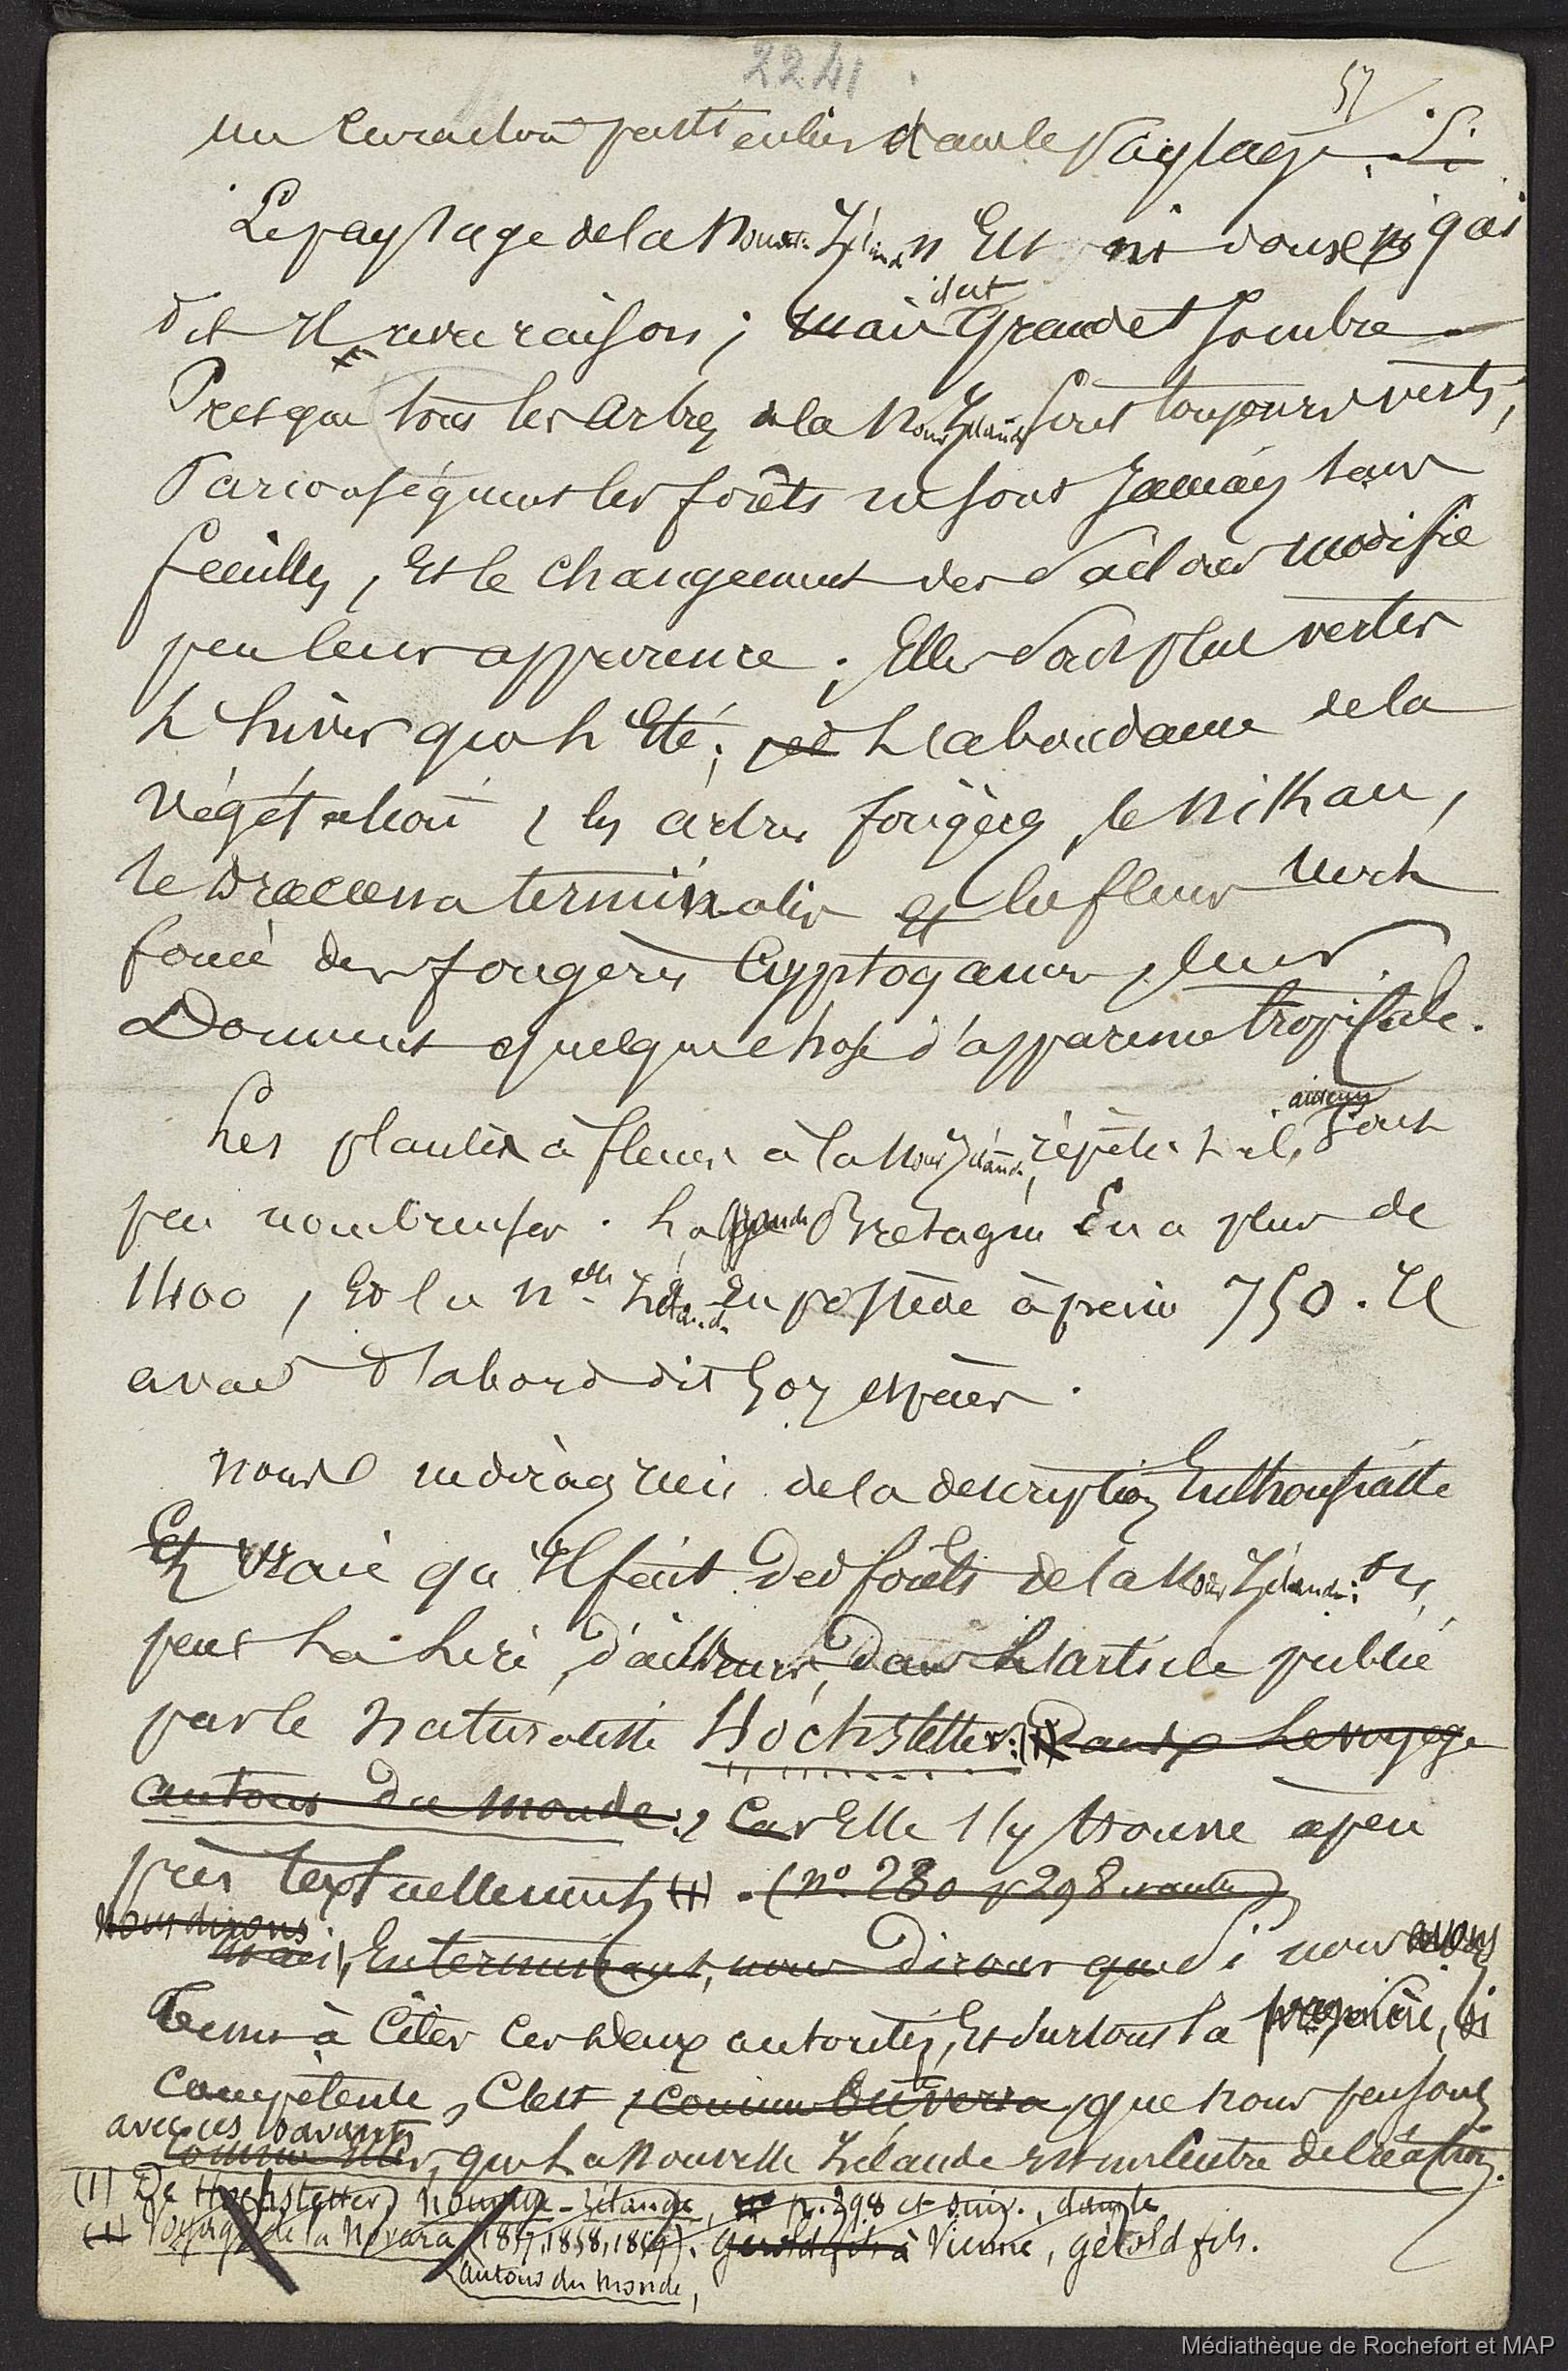 2241
57
un caractère particulier dans le Paysage. Si
Le paysage de la Nouvelle Zélande n'Est ni doux ni gai
dit Il avec raison ; mais il est Grand et Sombre
Presque tous les Arbres de la Nouv Zélande sont toujours verts,
Par conséquent les forêts ne sont Jamais sans
feuilles, Et le changement des Saisons modifie
peu leur apparence ; Elles Sont plus vertes
L'hiver que L'Eté ; L'abondance de la
Végétation, les arbres fougères, le Nikau,
le Dracaena terminalis et la fleur verte
foncé des fougères Cryptogames, leur
Donnent quelque chose d'apparence tropicale.
Les plantes à fleurs à la Nouv Zélande, répète t-il, Sont
peu nombreuses. La Grande Bretagne En a plus de
1400, Et la Nelle Zélande En possède à peine 750. Il
avait d'abord dit 507 espèces.
Nous ne dirons rien de la description Enthousiaste
Et vraie qu'Il fait des forêts de la Nouv Zélande ; On
peut La Lire, d'ailleurs, dans L'article publié
par le Naturaliste Hochstetter : (1) Dans Le voyage
autour du monde : Car Elle s'y trouve à peu
près textuellement (1) . (n° 280 p 298 )
Nous dirons
Mais, En terminant, nous Dirons que Si nous avons
Tenu à Citer ces deux autorités, Et surtout la première, si
Compétente, C'est que nous pensons
avec ces savants
Comme Elles, que La Nouvelle Zélande Est un Centre de Création.
(1) De Hochstetter, Nouvelle-Zélande, p. 298 et suiv., dans le
(1) Voyage de la Novara (1857, 1858, 1859). Gerold fils à Vienne, gérold fils.
autour du monde,
Médiathèque de Rochefort et MAP